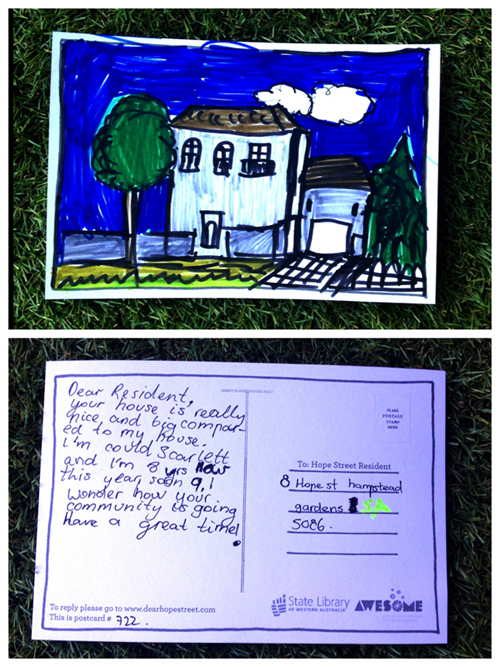 Dear Resident,
your house is really
nice and big compar-
ed to my house.
I'm could Scarlett
and I'm 8 yrs now
this year, soon 9, I
wonder how your
community is going
Have a great time!
PLACE
POSTAGE
STAMP
HERE
To: Hope Street Resident
8 Hope st hampstead
gardens SA
5086.
To reply please go to www.dearhopestreet.com
This is postcard # 722.
State Library
OF WESTERN AUSTRALIA
AWESOME